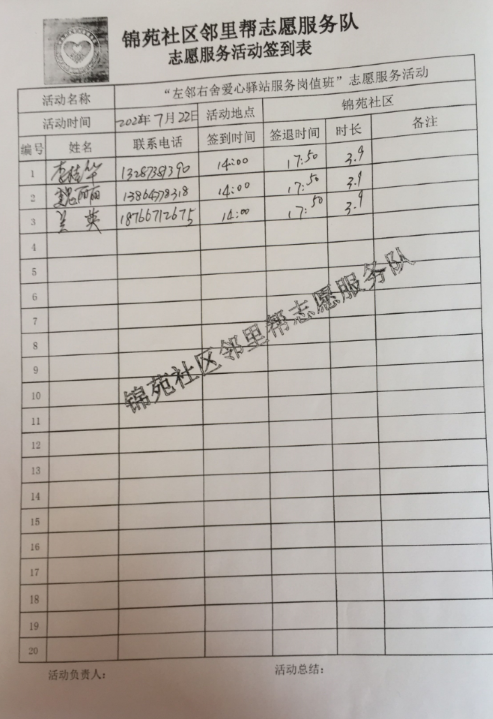 锦苑社区邻里帮志愿服务队
志愿服务活动签到表
活动名称 “左邻右舍爱心驿站服务岗值班”志愿服务活动
活动时间 2022年7月22日 活动地点 锦苑社区
编号 姓名 联系电话 签到时间 签退时间 时长 备注
1 李桂华 13287387390 14:00 17:50 3.9
2 魏丽丽 13864778318 14:00 17:50 3.9
3 兰英 18766712675 14:00 17:50 3.9
4
5
6
7
8
9
锦苑社区邻里帮志愿服务队
10
11
12
13
14
15
16
17
18
19
20
活动负责人： 活动总结：